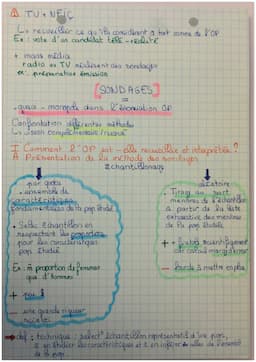 TV + NEIC
↳ recueillir ce qu'ils considèrent à tort comme de l'OP
Ex : vote d'un candidat télé-réalité
+ mass média
radio ou TV réalisent des sondages
ex : présentation émission
[SONDAGES]
quasi-monopole dans l'évaluation OP
Confrontation différentes méthodes
↳ vision complémentaire/nuancé
I Comment l'OP est-elle recueillie et interprétée ?
A Présentation de la méthode des sondages
2 échantillonnages
par quotas
ensemble de
caractéristiques
fondamentales de la pop. étudié
• Sélec. échantillon en
respectant les proportions
pour les caractéristiques
pop. étudié
Ex : m̂ proportion de femmes
que d'hommes
+
- une grande rigueur
aléatoire
• Tirage au sort
membres de l'échantillon
à partir de la liste
exhaustive des membres
de la pop. étudiée
+ scientifiquement
car calcul marge d'erreur
- lourde à mettre en place
→ déf : technique : select° échantillon représentatif d'une pop.,
à en étudier les caractéristiques et à en inférer celles de l'ensemble
de la pop.